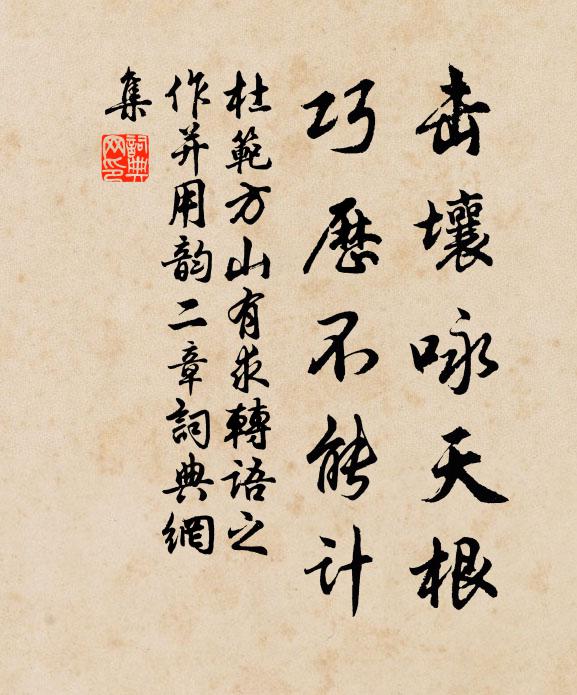 击壤咏天根
巧历不能计
杜範方山有求轉語之
作并用韵二章詞典網
集
詞典
网印